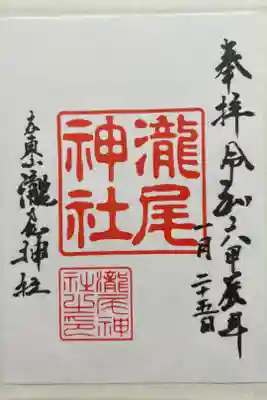 奉拝 令和六甲辰年
一月二十五日
瀧尾
神社
瀧尾神
社之印
瀧尾神社